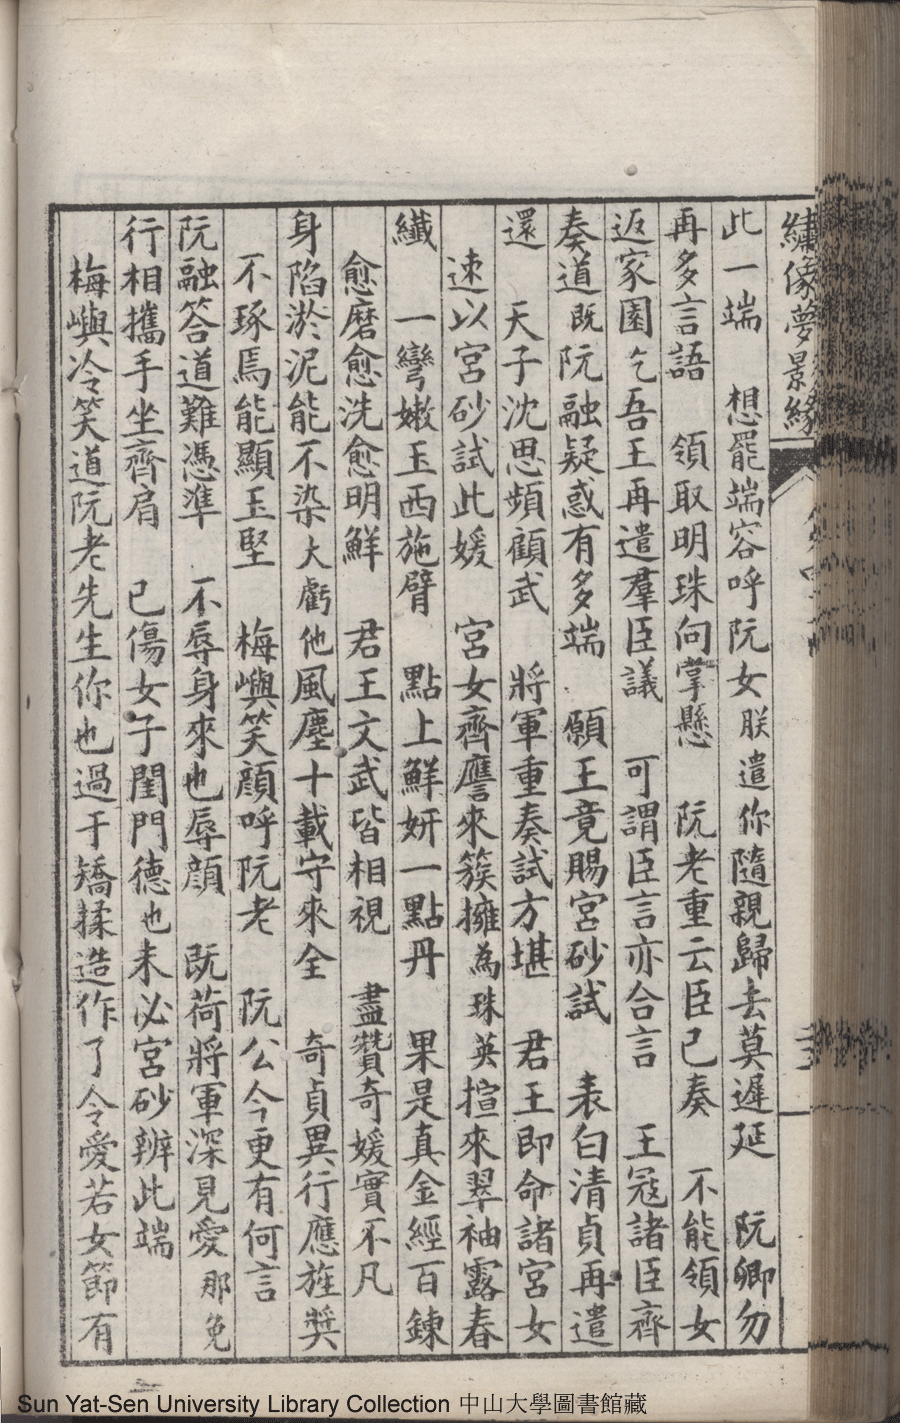 繡像夢景緣
此一端　想罷端容呼阮女朕遣你隨親歸去莫遲延　阮卿勿
再多言語　領取明珠向掌懸　阮老重云臣已奏　不能領女
返家園乞吾王再遣羣臣議　可謂臣言亦合言　王冦諸臣齊
奏道既阮融疑惑有多端　願王竟賜宮砂試　表白清貞再遣
還　天子沈思頻顧武　將軍重奏試方堪　君王即命諸宮女
速以宮砂試此媛　宮女齊譍來簇擁為珠英揎來翠袖露春
纖　一彎嫩玉西施臂　點上鮮妍一點丹　果是真金經百鍊
愈磨愈洗愈明鮮　君王文武皆相視　盡贊奇媛實不凡
身陷淤泥能不染大虧他風塵十載守來全　奇貞異行應旌奬
不琢焉能顯玉堅　梅嶼笑顔呼阮老　阮公今更有何言
阮融答道難憑準　不辱身來也辱顔　既荷將軍深見愛那免
行相攜手坐齊肩　已傷女子閨門德也未必宮砂辨此端
梅嶼冷笑道阮老先生你也過于矯揉造作了令愛若女節有
Sun Yat-Sen University Library Collection 中山大學圖書館藏